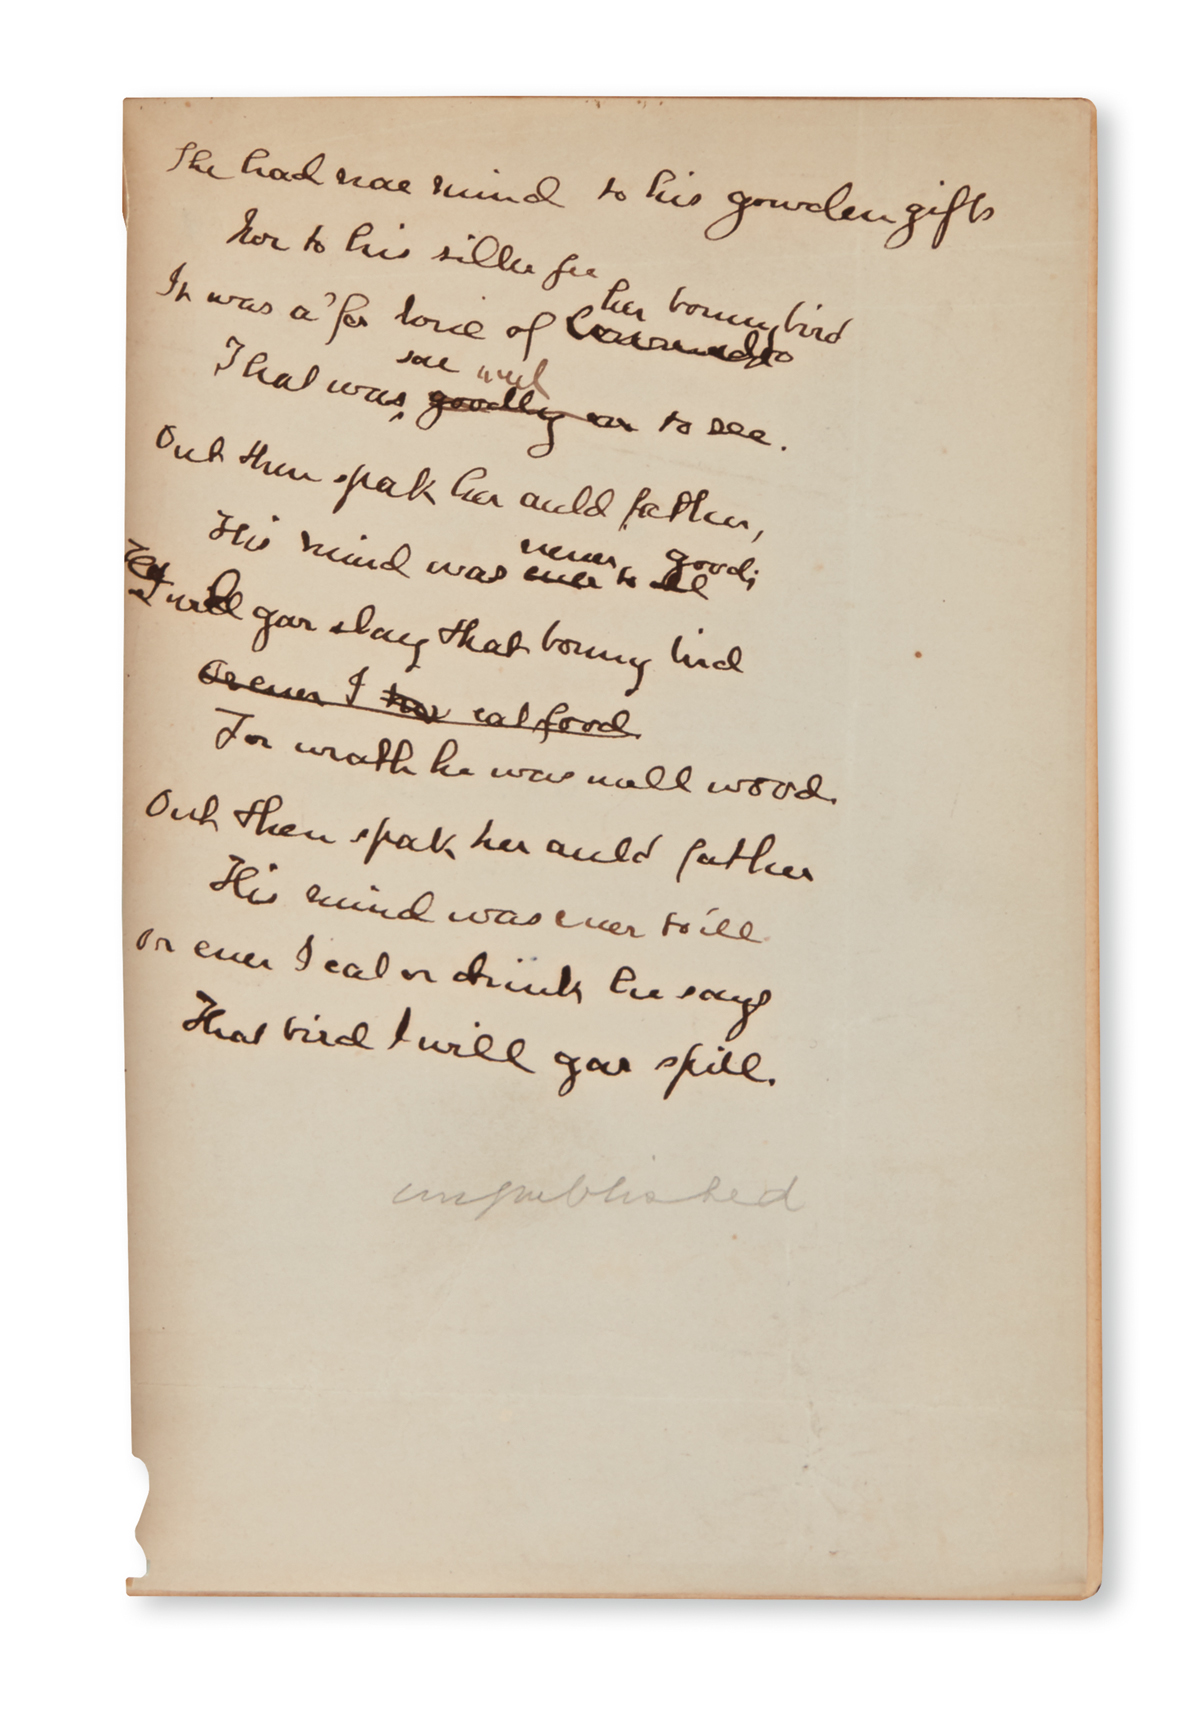 She had nae mind to his gowden gifts
Nor to his siller fee
her bonny bird
It was a' for love of
sae weel
That was goodly to see.
Out then spak her auld father,
never good;
His mind was ever to ill
I will gar slay that bonny bird
Or ever I eat food.
For wrath he was well wood.
Out then spak her auld father
His mind was ever to ill
Or ever I eat or drink he says
That bird I will gar spill.
unpublished